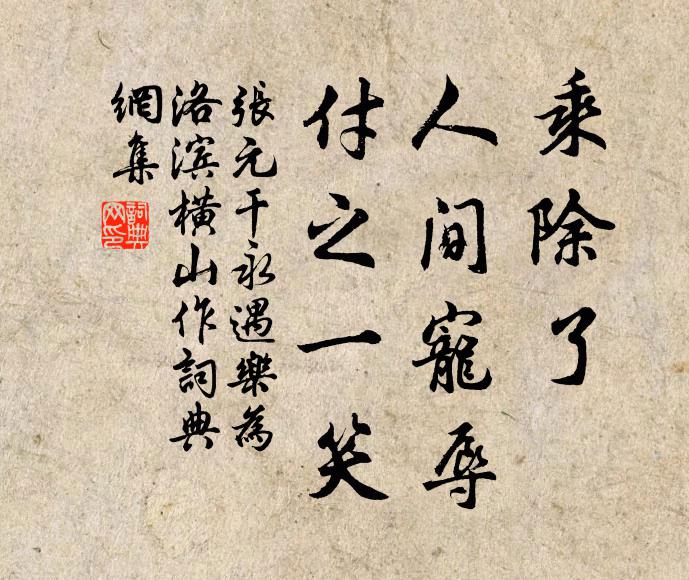 乘除了
人间寵辱
付之一笑
張元干永遇樂為
洛滨橫山作詞典
網集
詞典
网印